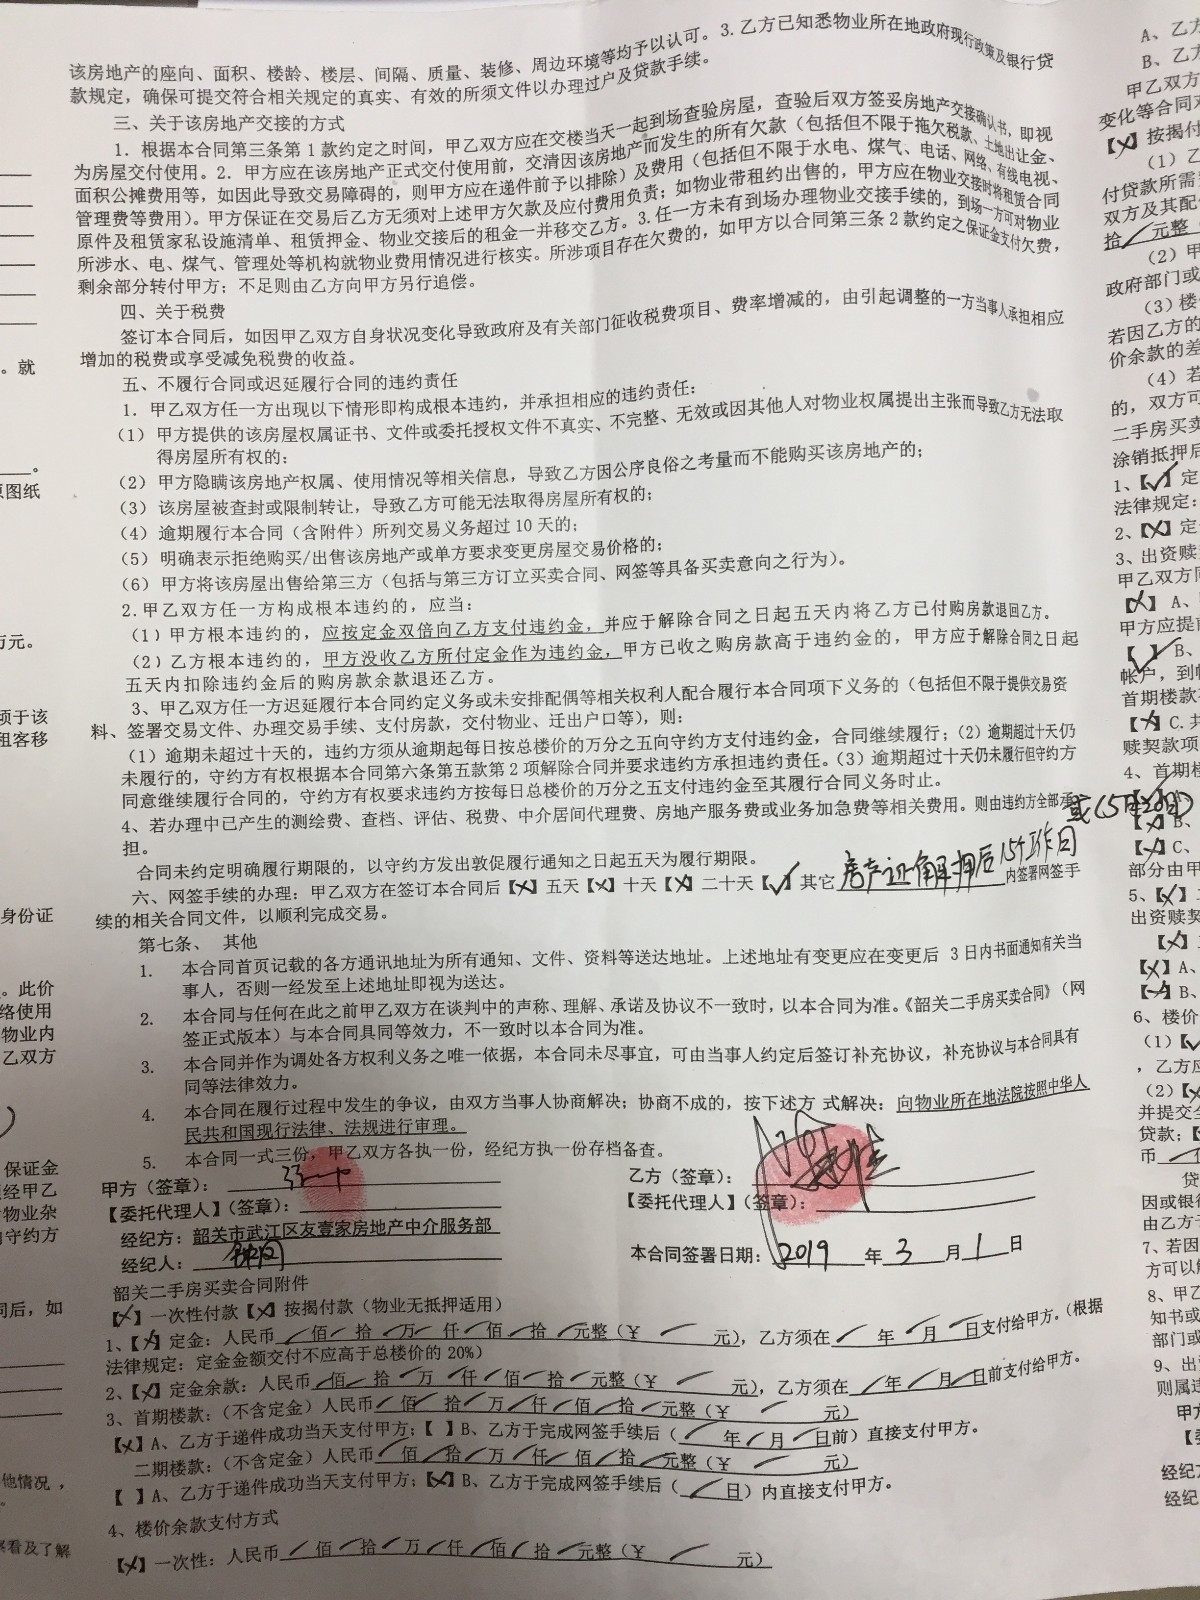 该房地产的座向、面积、楼龄、楼层、间隔、质量、装修、周边环境等均予以认可。3.乙方已知悉物业所在地政府现行政策及银行贷
款规定，确保可提交符合相关规定的真实、有效的所须文件以办理过户及贷款手续。
三、关于该房地产交接的方式
1. 根据本合同第三条第 1 款约定之时间，甲乙双方应在交楼当天一起到场查验房屋，查验后双方签妥房地产交接确认书，即视
为房屋交付使用。2. 甲方应在该房地产正式交付使用前，交清因该房地产而发生的所有欠款（包括但不限于拖欠税款、土地出让金、
面积公摊费用等，如因此导致交易障碍的，则甲方应在递件前予以排除）及费用（包括但不限于水电、煤气、电话、网络、有线电视、
管理费等费用）。甲方保证在交易后乙方无须对上述甲方欠款及应付费用负责；如物业带租约出售的，甲方应在物业交接时将租赁合同
原件及租赁家私设施清单、租赁押金、物业交接后的租金一并移交乙方。3.任一方未有到场办理物业交接手续的，到场一方可对物业
所涉水、电、煤气、管理处等机构就物业费用情况进行核实。所涉项目存在欠费的，如甲方以合同第三条 2 款约定之保证金支付欠费，
剩余部分转付甲方；不足则由乙方向甲方另行追偿。
四、关于税费
签订本合同后，如因甲乙双方自身状况变化导致政府及有关部门征收税费项目、费率增减的，由引起调整的一方当事人承担相应
增加的税费或享受减免税费的收益。
五、不履行合同或迟延履行合同的违约责任
1. 甲乙双方任一方出现以下情形即构成根本违约，并承担相应的违约责任：
（1）甲方提供的该房屋权属证书、文件或委托授权文件不真实、不完整、无效或因其他人对物业权属提出主张而导致乙方无法取
得房屋所有权的；
（2）甲方隐瞒该房地产权属、使用情况等相关信息，导致乙方因公序良俗之考量而不能购买该房地产的；
（3）该房屋被查封或限制转让，导致乙方可能无法取得房屋所有权的；
（4）逾期履行本合同（含附件）所列交易义务超过 10 天的；
（5）明确表示拒绝购买/出售该房地产或单方要求变更房屋交易价格的；
（6）甲方将该房屋出售给第三方（包括与第三方订立买卖合同、网签等具备买卖意向之行为）。
2.甲乙双方任一方构成根本违约的，应当：
（1）甲方根本违约的，应按定金双倍向乙方支付违约金，并应于解除合同之日起五天内将乙方已付购房款退回乙方。
（2）乙方根本违约的，甲方没收乙方所付定金作为违约金，甲方已收之购房款高于违约金的，甲方应于解除合同之日起
五天内扣除违约金后的购房款余款退还乙方。
3、甲乙双方任一方迟延履行本合同约定义务或未安排配偶等相关权利人配合履行本合同项下义务的（包括但不限于提供交易资
料、签署交易文件、办理交易手续、支付房款，交付物业、迁出户口等），则：
（1）逾期未超过十天的，违约方须从逾期起每日按总楼价的万分之五向守约方支付违约金，合同继续履行；（2）逾期超过十天仍
未履行的，守约方有权根据本合同第六条第五款第 2 项解除合同并要求违约方承担违约责任。（3）逾期超过十天仍未履行但守约方
同意继续履行合同的，守约方有权要求违约方按每日总楼价的万分之五支付违约金至其履行合同义务时止。
4、若办理中已产生的测绘费、查档、评估、税费、中介居间代理费、房地产服务费或业务加急费等相关费用。则由违约方全部承
担。
合同未约定明确履行期限的，以守约方发出敦促履行通知之日起五天为履行期限。
六、网签手续的办理：甲乙双方在签订本合同后【×】五天【×】十天【×】二十天【✓】其它 房产证解押后15个工作日 内签署网签手
续的相关合同文件，以顺利完成交易。
第七条、 其他
1. 本合同首页记载的各方通讯地址为所有通知、文件、资料等送达地址。上述地址有变更应在变更后 3 日内书面通知有关当
事人，否则一经发至上述地址即视为送达。
2. 本合同与任何在此之前甲乙双方在谈判中的声称、理解、承诺及协议不一致时，以本合同为准。《韶关二手房买卖合同》（网
签正式版本）与本合同具同等效力，不一致时以本合同为准。
3. 本合同并作为调处各方权利义务之唯一依据，本合同未尽事宜，可由当事人约定后签订补充协议，补充协议与本合同具有
同等法律效力。
4. 本合同在履行过程中发生的争议，由双方当事人协商解决；协商不成的，按下述方 式解决：向物业所在地法院按照中华人
民共和国现行法律、法规进行审理。
5. 本合同一式三份，甲乙双方各执一份，经纪方执一份存档备查。
甲方（签章）： 乙方（签章）：
【委托代理人】（签章）： 【委托代理人】（签章）：
经纪方：韶关市武江区友壹家房地产中介服务部
经纪人： 本合同签署日期：2019 年 3 月 1 日
韶关二手房买卖合同附件
【×】一次性付款【×】按揭付款（物业无抵押适用）
1、【×】定金：人民币 佰 拾 万 仟 佰 拾 元整（¥ 元），乙方须在 年 月 日支付给甲方。（根据
法律规定：定金金额交付不应高于总楼价的 20%）
2、【×】定金余款：人民币 佰 拾 万 仟 佰 拾 元整（¥ 元），乙方须在 年 月 日前支付给甲方。
3、首期楼款：（不含定金）人民币 佰 拾 万 仟 佰 拾 元整（¥ 元）
【×】A、乙方于递件成功当天支付甲方；【 】B、乙方于完成网签手续后（ 年 月 日前）直接支付甲方。
二期楼款：（不含定金）人民币 佰 拾 万 仟 佰 拾 元整（¥ 元）
【 】A、乙方于递件成功当天支付甲方；【×】B、乙方于完成网签手续后（ 日）内直接支付甲方。
4、楼价余款支付方式
【×】一次性：人民币 佰 拾 万 仟 佰 拾 元整（¥ 元）